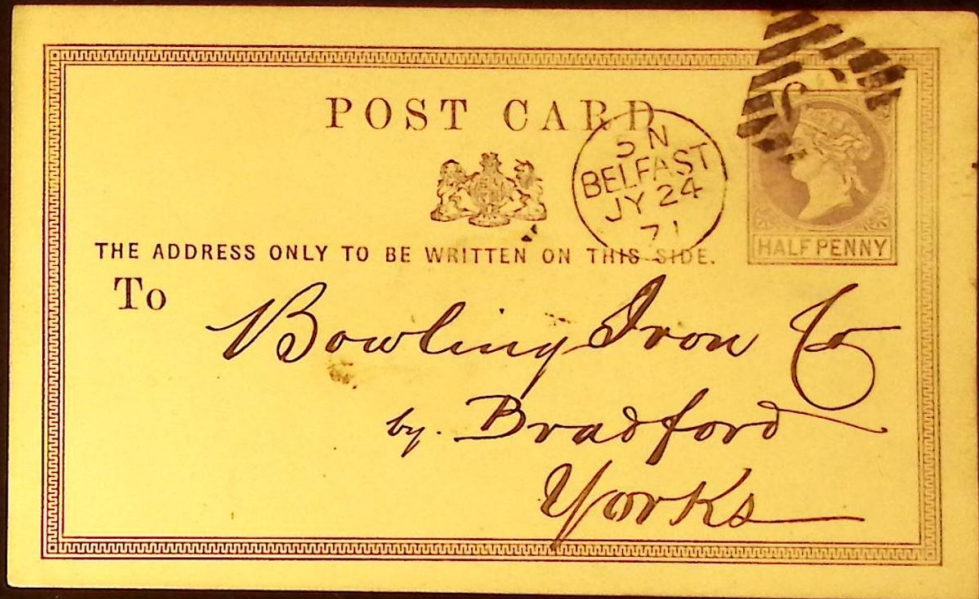 POST CARD
5 N
BELFAST
JY 24
71
HALFPENNY
THE ADDRESS ONLY TO BE WRITTEN ON THIS SIDE.
To
Bowling Iron Co
by. Bradford
Yorks